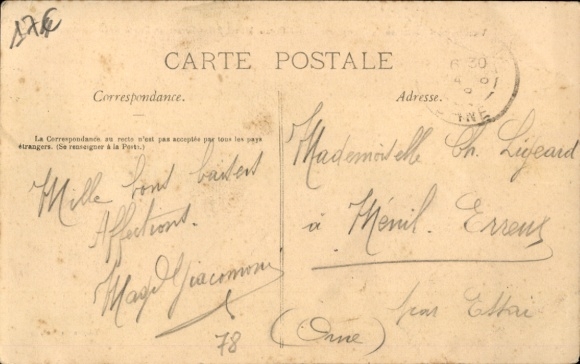 17€
CARTE POSTALE
Correspondance.
Adresse.
La Correspondance au recto n'est pas acceptée par tous les pays
étrangers. (Se renseigner à la Poste.)
Mille bons baisers
Affections.
Magd Giacomoni
78
Mademoiselle Ch. Ligeard
à Ménil. Erreux
par Essai
(Orne)
6 30